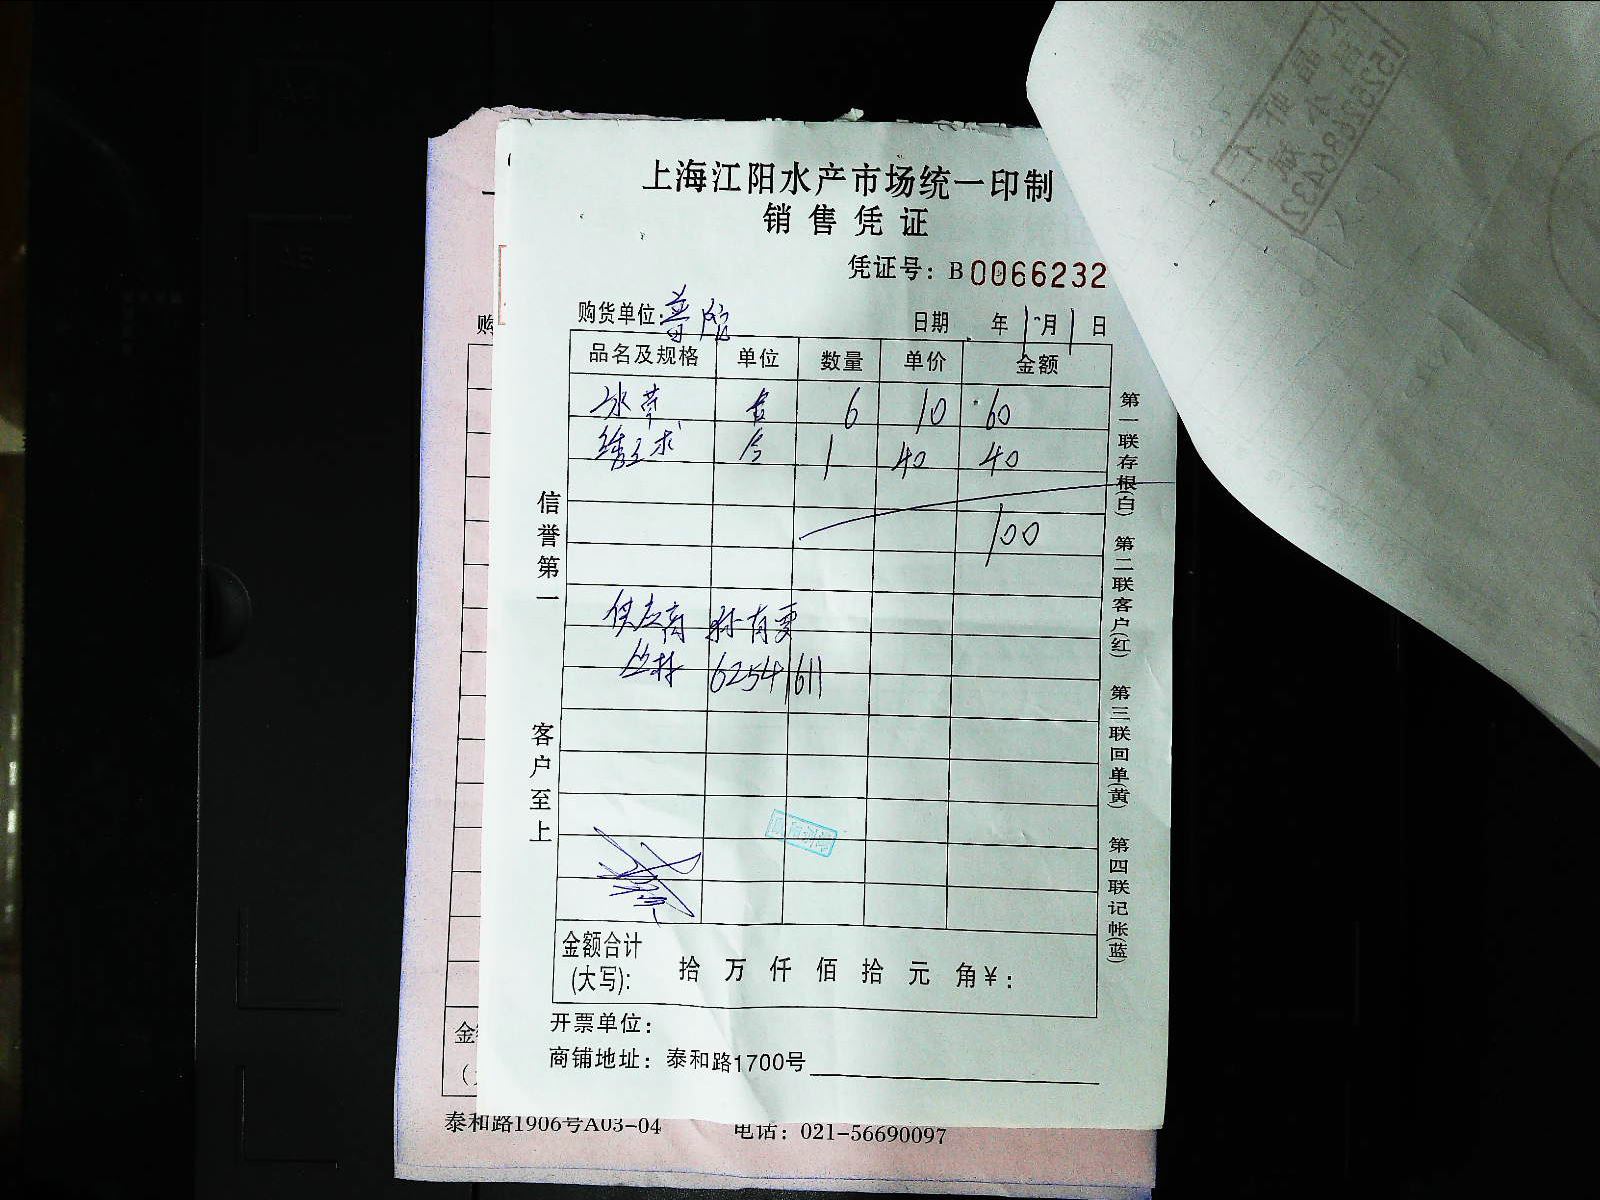 上海江阳水产市场统一印制
销售凭证
凭证号：B0066232
购货单位：普陀 日期 年 1月 1日
品名及规格 单位 数量 单价 金额
水草 6 10 60
1 40 40
100
供应商 孙有更
丛林 62541611
信誉第一
客户至上
第一联存根(白) 第二联客户(红) 第三联回单(黄) 第四联记帐(蓝)
金额合计
(大写)： 拾 万 仟 佰 拾 元 角¥：
开票单位：
商铺地址：泰和路1700号
泰和路1906号A03-04 电话：021-56690097
购
金
15252686432